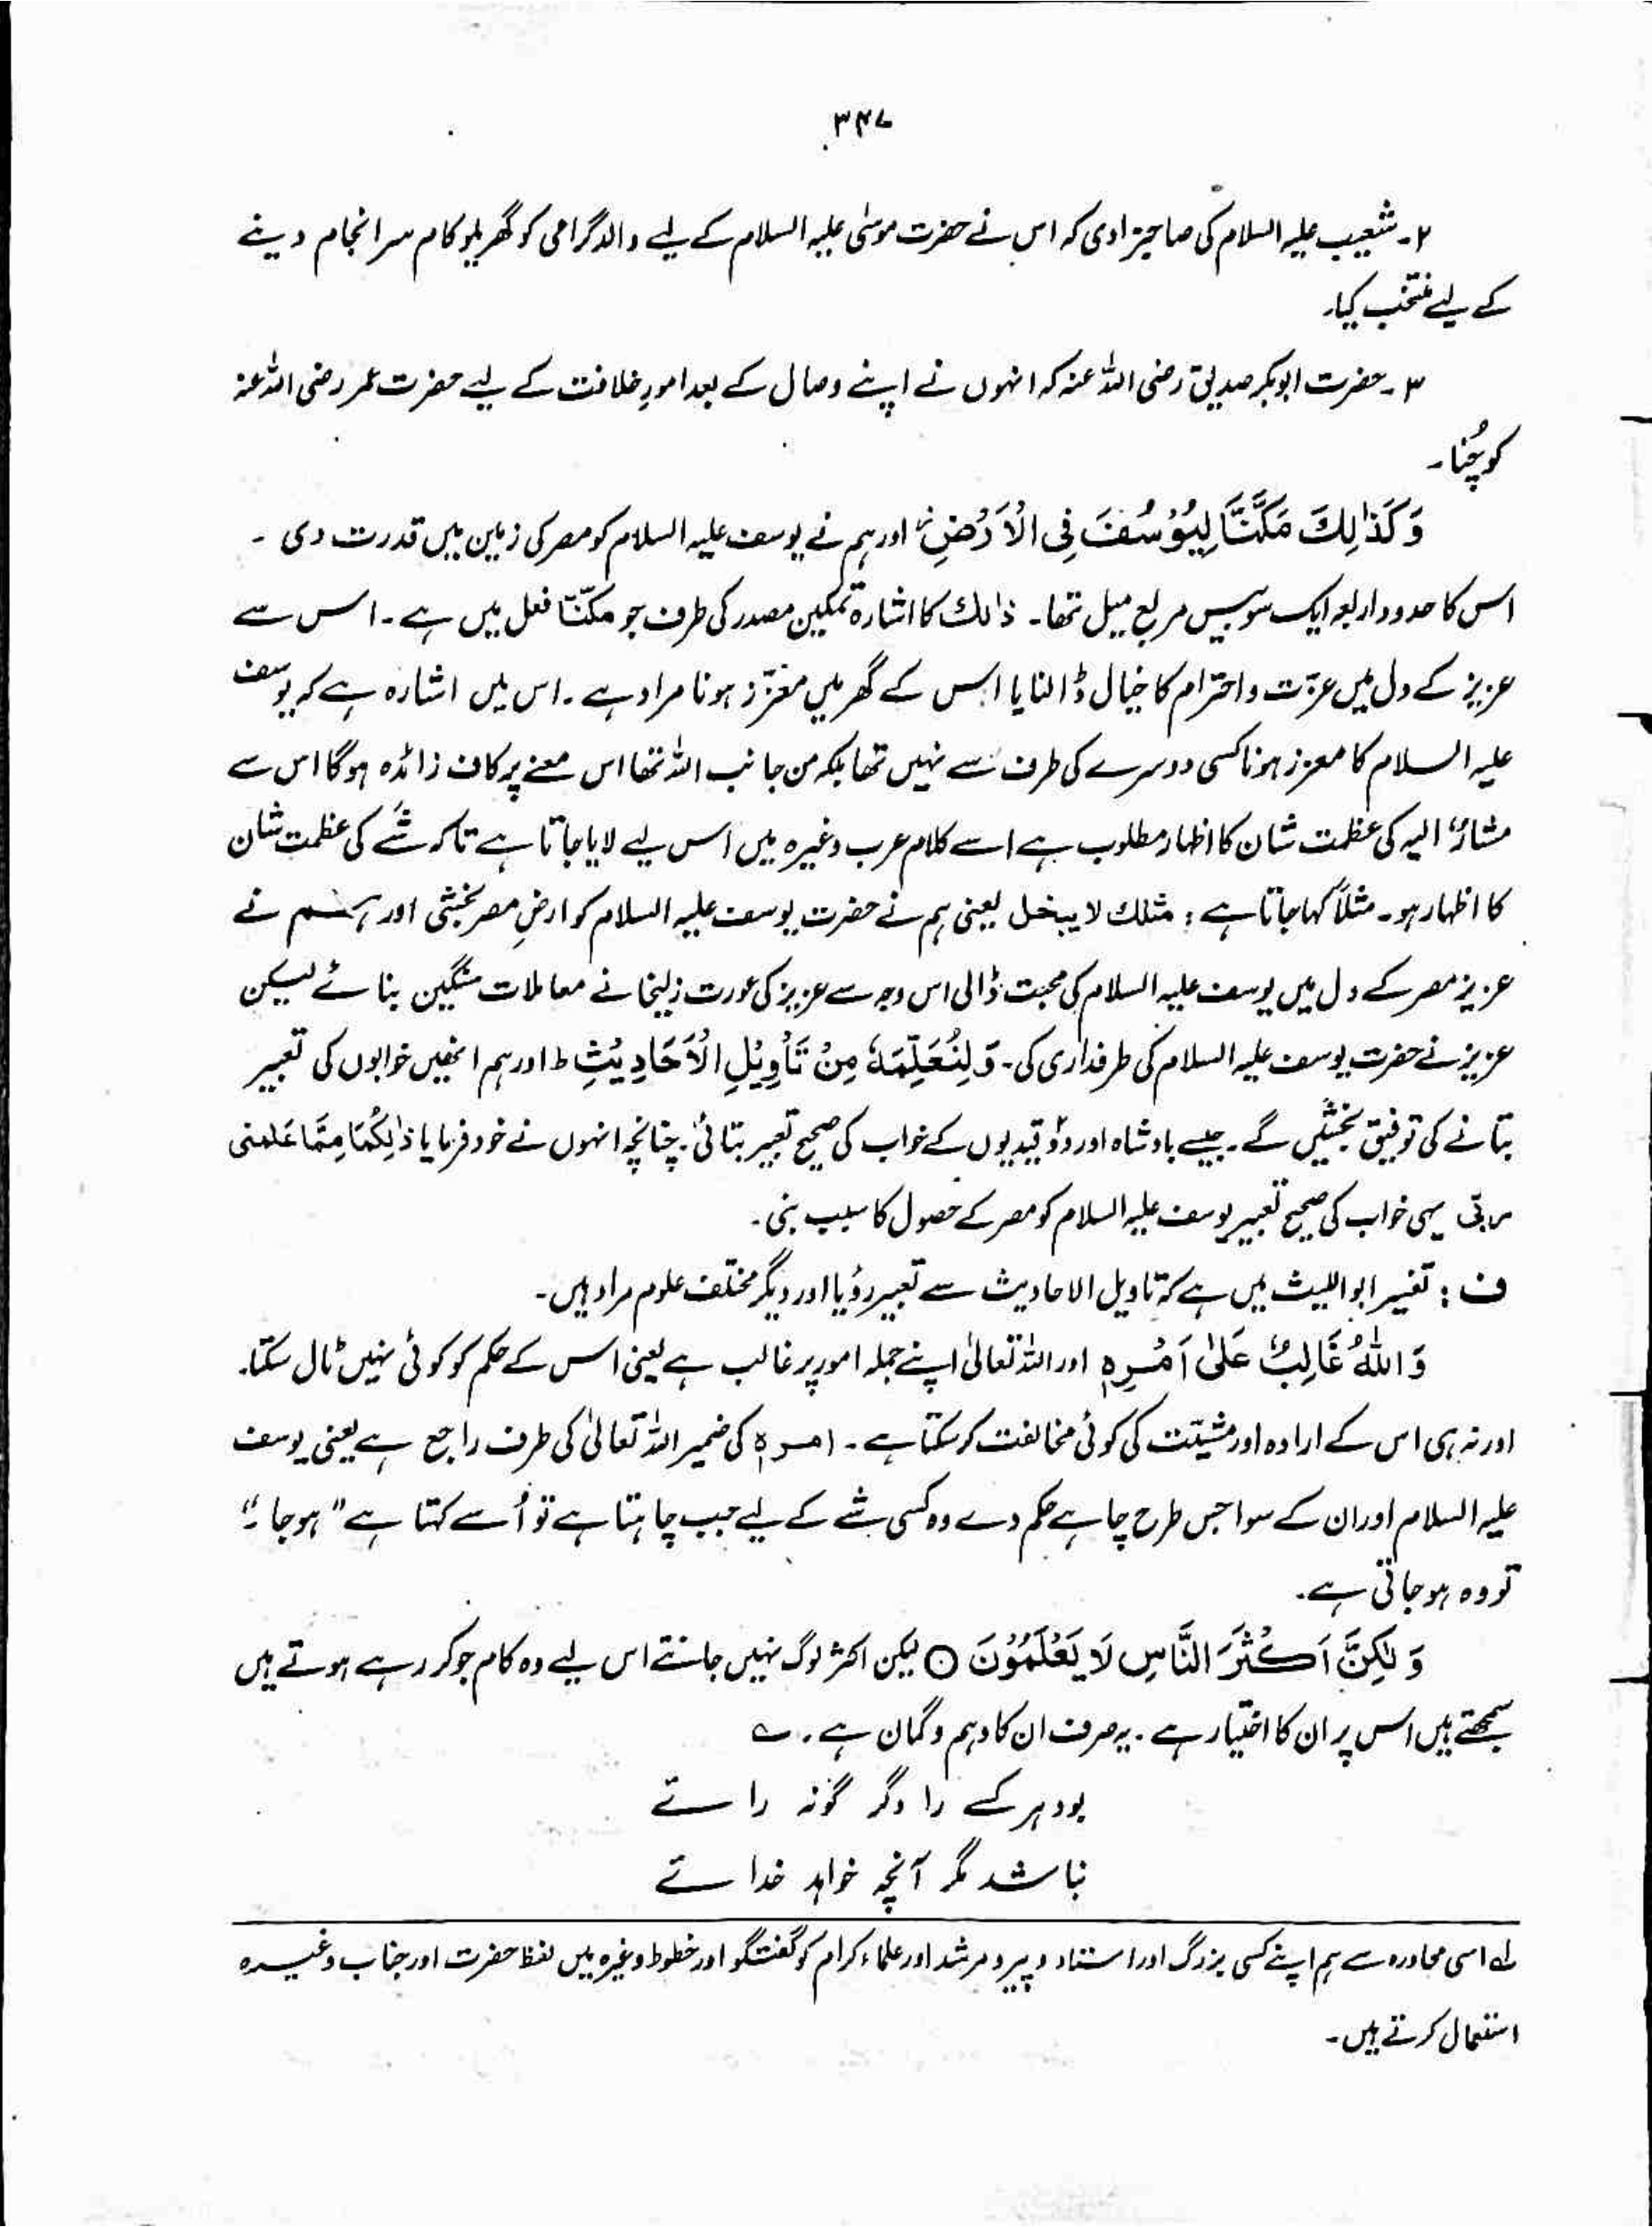 ۳۴۷
۲۔ شعیب علیہ السلام کی صاحبزادی کہ اس نے حضرت موسٰی علیہ السلام کے لیے والد گرامی کو گھریلو کام سرانجام دینے
کے لیے منتخب کیا۔
۳۔ حضرت ابوبکر صدیق رضی اللہ عنہ کہ انہوں نے اپنے وصال کے بعد امورِ خلافت کے لیے حضرت عمر رضی اللہ عنہ
کو چُنا۔
وَكَذٰلِكَ مَكَّنَّا لِيُوْسُفَ فِى الْاَرْضِ ز اور ہم نے یوسف علیہ السلام کو مصر کی زمین میں قدرت دی ۔
اس کا حدود اربعہ ایک سو بیس مربع میل تھا۔ ذالك کا اشارہ تمکین مصدر کی طرف جو مکنّا فعل میں ہے ۔ اس سے
عزیز کے دل میں عزّت و احترام کا خیال ڈالنا یا اس کے گھر میں معزّز ہونا مراد ہے ۔ اس میں اشارہ ہے کہ یوسف
علیہ السلام کا معزز ہونا کسی دوسرے کی طرف سے نہیں تھا بلکہ من جانب اللہ تھا اس معنے پر کاف زائدہ ہو گا اس سے
مشارٌ الیہ کی عظمت شان کا اظہار مطلوب ہے اسے کلام عرب وغیرہ میں اس لیے لایا جاتا ہے تاکہ شَے کی عظمت شان
کا اظہار ہو۔ مثلاً کہا جاتا ہے : مثلك لا يبخل یعنی ہم نے حضرت یوسف علیہ السلام کو ارضِ مصر بخشی اور ہم نے
عزیز مصر کے دل میں یوسف علیہ السلام کی محبت ڈالی اس وجہ سے عزیز کی عورت زلیخا نے معاملات سنگین بنائے لیکن
عزیز نے حضرت یوسف علیہ السلام کی طرفداری کی۔ وَلِنُعَلِّمَهٗ مِنْ تَأْوِيْلِ الْاَحَادِيْثِ ط اور ہم انھیں خوابوں کی تعبیر
بتانے کی توفیق بخشیں گے ۔ جیسے بادشاہ اور دو قیدیوں کے خواب کی صحیح تعبیر بتائی ۔ چنانچہ انہوں نے خود فرمایا ذٰلِكُمَا مِمَّا عَلمنى
ربّی یہی خواب کی صحیح تعبیر یوسف علیہ السلام کو مصر کے حصول کا سبب بنی ۔
ف : تفسیر ابو اللیث میں ہے کہ تاویل الاحادیث سے تعبیر رؤیا اور دیگر مختلف علوم مراد ہیں ۔
وَاللّٰهُ غَالِبٌ عَلٰى اَمْرِهٖ اور اللہ تعالیٰ اپنے جملہ امور پر غالب ہے یعنی اس کے حکم کو کوئی نہیں ٹال سکتا۔
اور نہ ہی اس کے ارادہ اور مشیّت کی کوئی مخالفت کر سکتا ہے ۔ امرہٖ کی ضمیر اللہ تعالیٰ کی طرف راجع ہے یعنی یوسف
علیہ السلام اور ان کے سوا جس طرح چاہے حکم دے وہ کسی شے کے لیے جب چاہتا ہے تو اُسے کہتا ہے "ہو جا۔"
تو وہ ہو جاتی ہے ۔
وَلٰكِنَّ اَكْثَرَ النَّاسِ لَا يَعْلَمُوْنَ ○ لیکن اکثر لوگ نہیں جانتے اس لیے وہ کام جو کر رہے ہوتے ہیں
سمجھتے ہیں اس پر ان کا اختیار ہے ۔ یہ صرف ان کا وہم و گمان ہے ۔ ؎
بود ہر کسے را دگر گونہ رائے
نباشد مگر آنچہ خواہد خدائے
لہ اسی محاورہ سے ہم اپنے کسی بزرگ اور استاد و پیر و مرشد اور علماء کرام کو گفتگو اور خطوط وغیرہ میں لفظ حضرت اور جناب وغیرہ
استعمال کرتے ہیں ۔